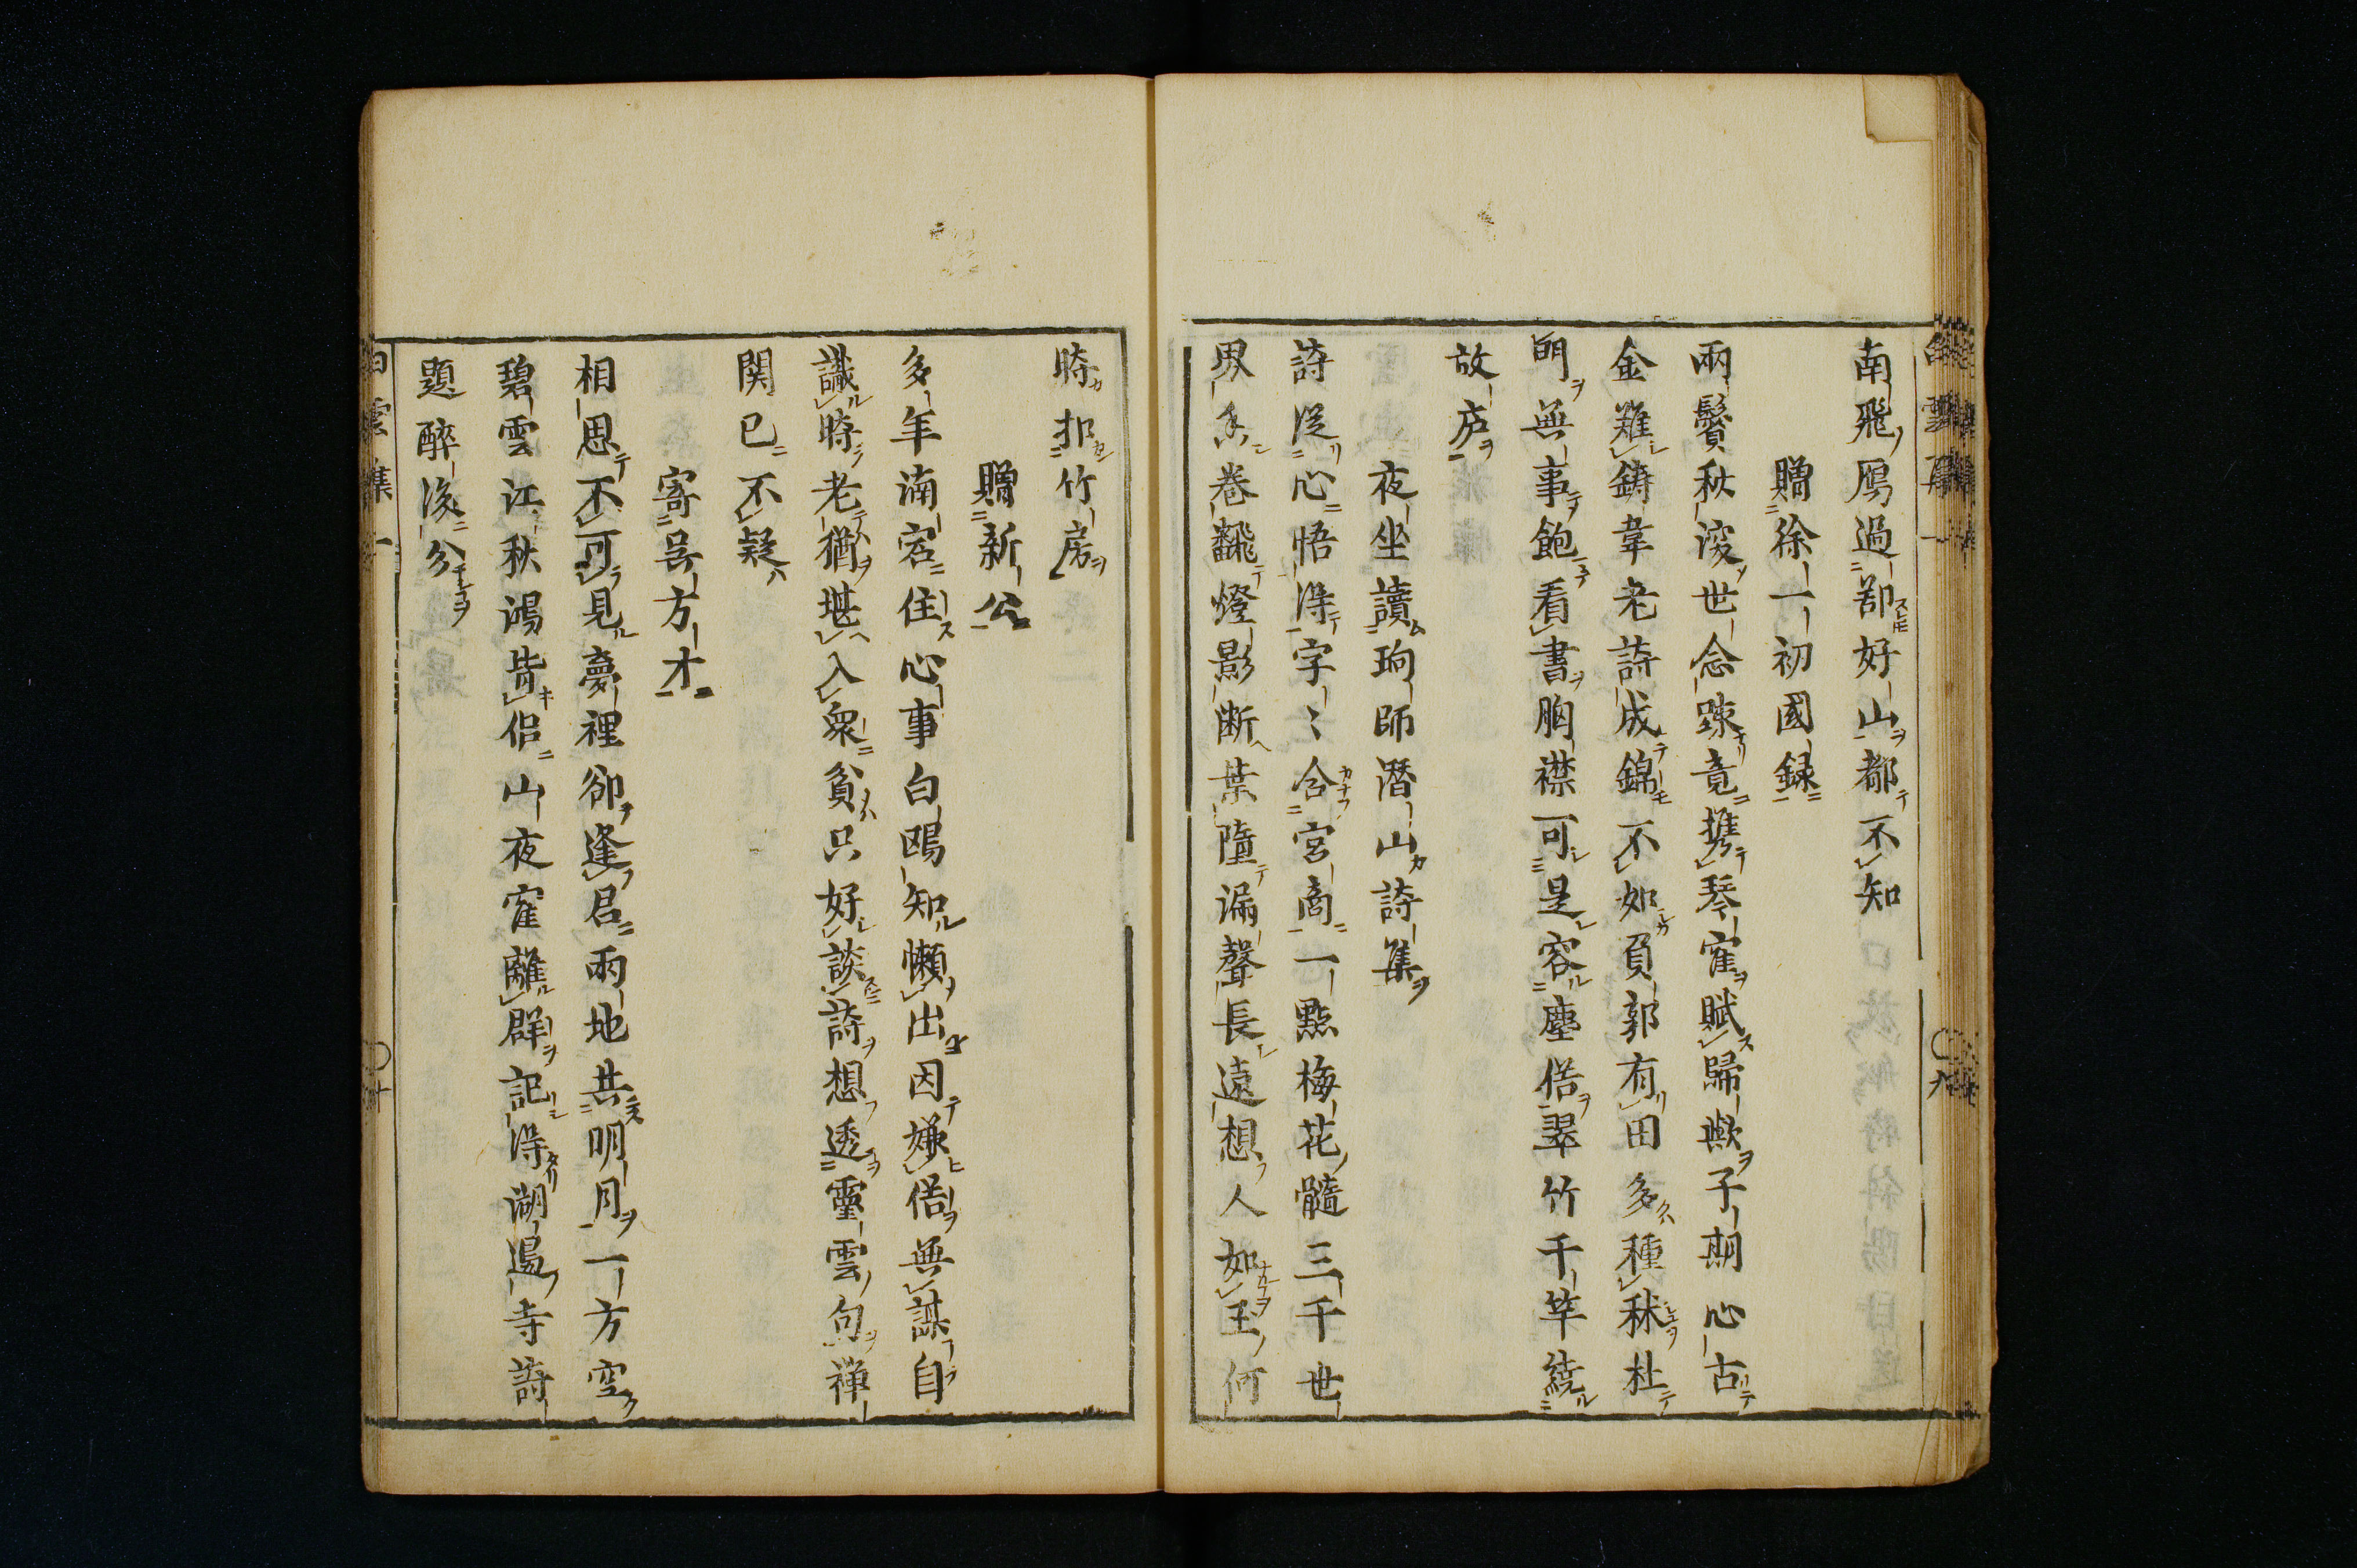 南飛鴈過都好山都不知
贈徐一初國録
兩鬢秋深世念踈竟携琴寉賦歸歟子期心古
金難鑄韋老詩成錦不如負郭有田多種秫杜
門無事飽看書胸襟可是容塵俗翠竹千竿繞
故庐
夜坐讀珦師潛山詩集
詩従心悟淂字〻含宮商一點梅花髓三千世
界香卷飜燈影断葉墮漏聲長遠想人如玉何
時扣竹房
贈新公
多年湳客住心事白鷗知懶出因嫌俗無謀自
識時老猶堪入衆貧只好談詩想透靈雲句禅
関已不疑
寄吳方才
相思不可見夢裡卻逢君兩地共明月一方空
碧雲江秋鴻皆侣山夜寉離群記淂湖邊寺詩
題醉後分
白雲集一
九
十